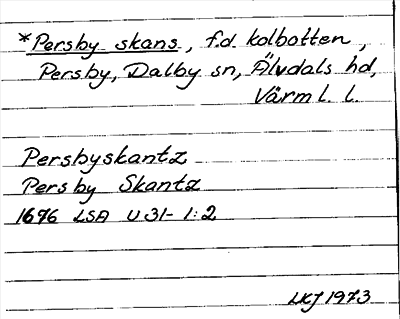 *Persby skans, f.d. kolbotten,
Persby, Dalby sn, Älvdals hd,
Värml. l.
Persbyskantz
Persby Skantz
1676 LSA U31-1:2
LKJ 1973